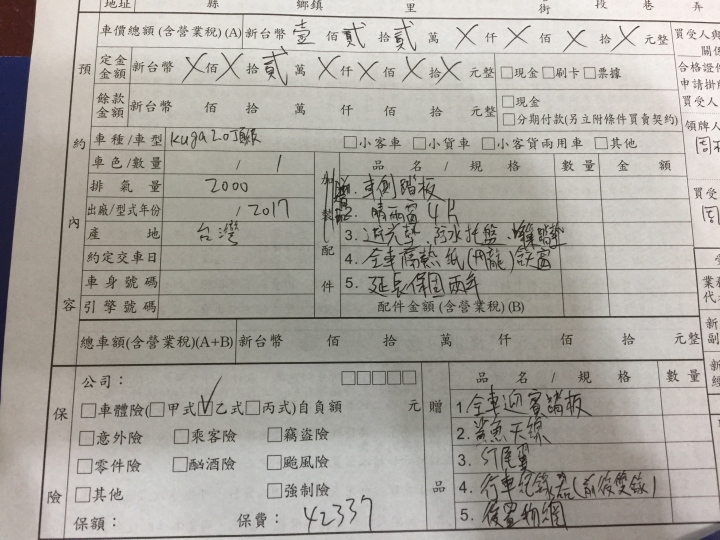 地址 縣 鄉鎮 里 街 段 巷 弄
車價總額(含營業稅)(A) 新台幣 壹 佰 貳 拾 貳 萬 X 仟 X 佰 X 拾 X 元整
買受人與
關係
預 定金金額 新台幣 X 佰 X 拾 貳 萬 X 仟 X 佰 X 拾 X 元整 □現金 □刷卡 □票據
合格證件
申請掛牌
餘款金額 新台幣 佰 拾 萬 仟 佰 拾 元整 □現金
□分期付款(另立附條件買賣契約)
買受人
領牌人
約 車種/車型 kuga 2.0頂級 □小客車 □小貨車 □小客貨兩用車 □其他
車色/數量 / 1
加裝配件 品名/規格 數量 金額
排氣量 2000
1. 車側踏板
內 出廠/型式年份 / 2017
2. 晴雨窗 4片
產地 台灣
3. 避光墊 污水托盤
約定交車日
4. 全車隔熱紙(FM龍)含天窗
車身號碼
5. 延長保固兩年
容 引擎號碼
配件金額(含營業稅)(B)
買受人
總車額(含營業稅)(A+B) 新台幣 佰 拾 萬 仟 佰 拾 元整
公司: □□□□□
贈品 品名/規格 數量
保險 □車體險(□甲式 ☑乙式 □丙式)自負額 元
1. 全車迎賓踏板
□意外險 □乘客險 □竊盜險
2. 鯊魚天線
□零件險 □酗酒險 □颱風險
3. ST尾翼
□其他 □強制險
4. 行車紀錄器(前後雙錄)
保額: 保費: 42337
5. 後置物網